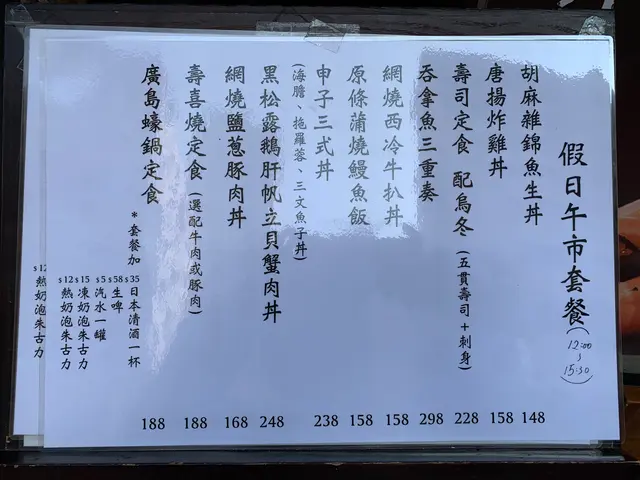 假日午市套餐(12:00~15:30)
胡麻雜錦魚生丼 148
唐揚炸雞丼 158
壽司定食 配烏冬(五貫壽司+刺身) 228
吞拿魚三重奏 298
網燒西冷牛扒丼 158
原條蒲燒鰻魚飯 158
申子三式丼 238
(海膽、拖羅蓉、三文魚子丼)
黑松露鵝肝帆立貝蟹肉丼 248
網燒鹽蔥豚肉丼 168
壽喜燒定食(選配牛肉或豚肉) 188
廣島蠔鍋定食 188
*套餐加
$35日本清酒一杯
$58生啤
$5汽水一罐
$15凍奶泡朱古力
$12熱奶泡朱古力
$12熱奶泡朱古力